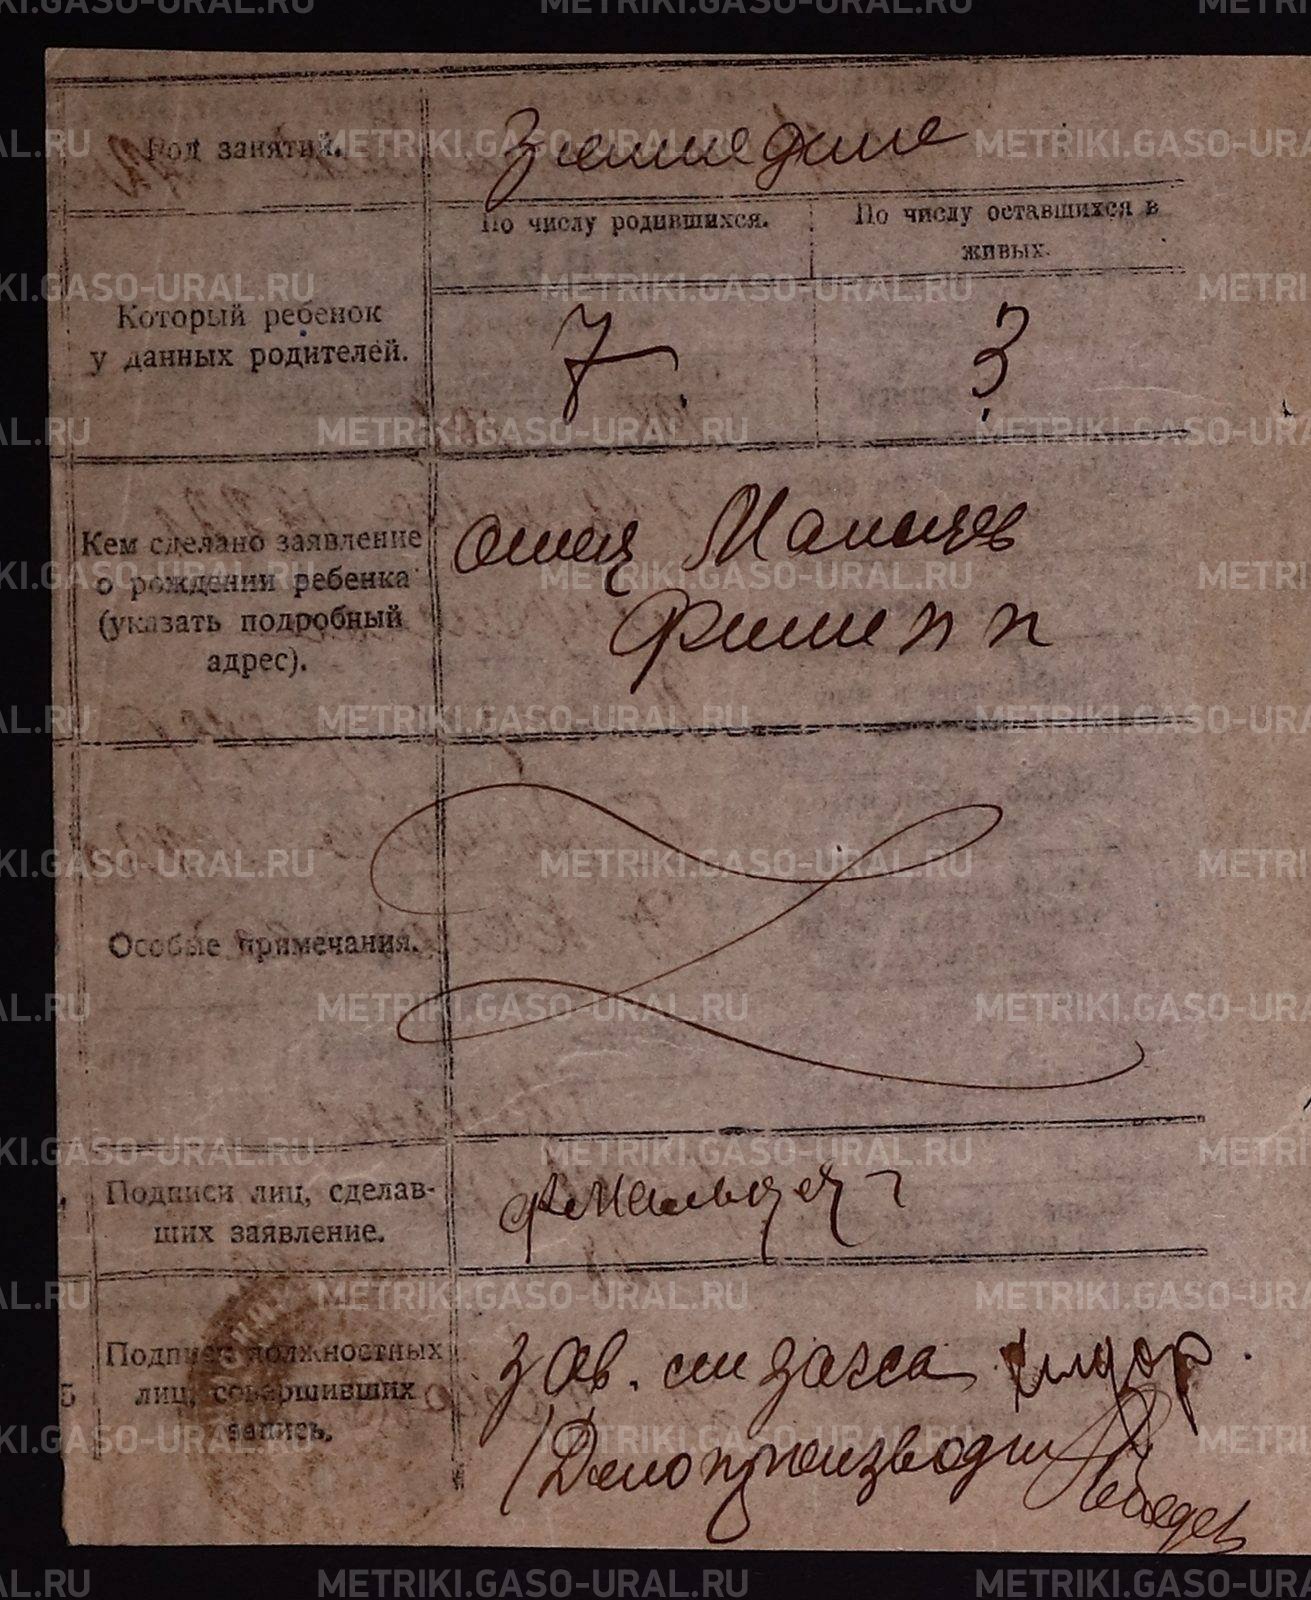 Род занятий.
Земледелие
По числу родившихся.
По числу оставшихся в
живых.
Который ребенок
у данных родителей.
7
3
Кем сделано заявление
о рождении ребенка
(указать подробный
адрес).
Отец Мальцев
Филипп
Особые примечания.
Подписи лиц, сделав-
ших заявление.
Ф Мальцев
5
Подписи должностных
лиц, совершивших
запись.
Зав.
Делопроизводит Лебедев
METRIKI.GASO-URAL.RU